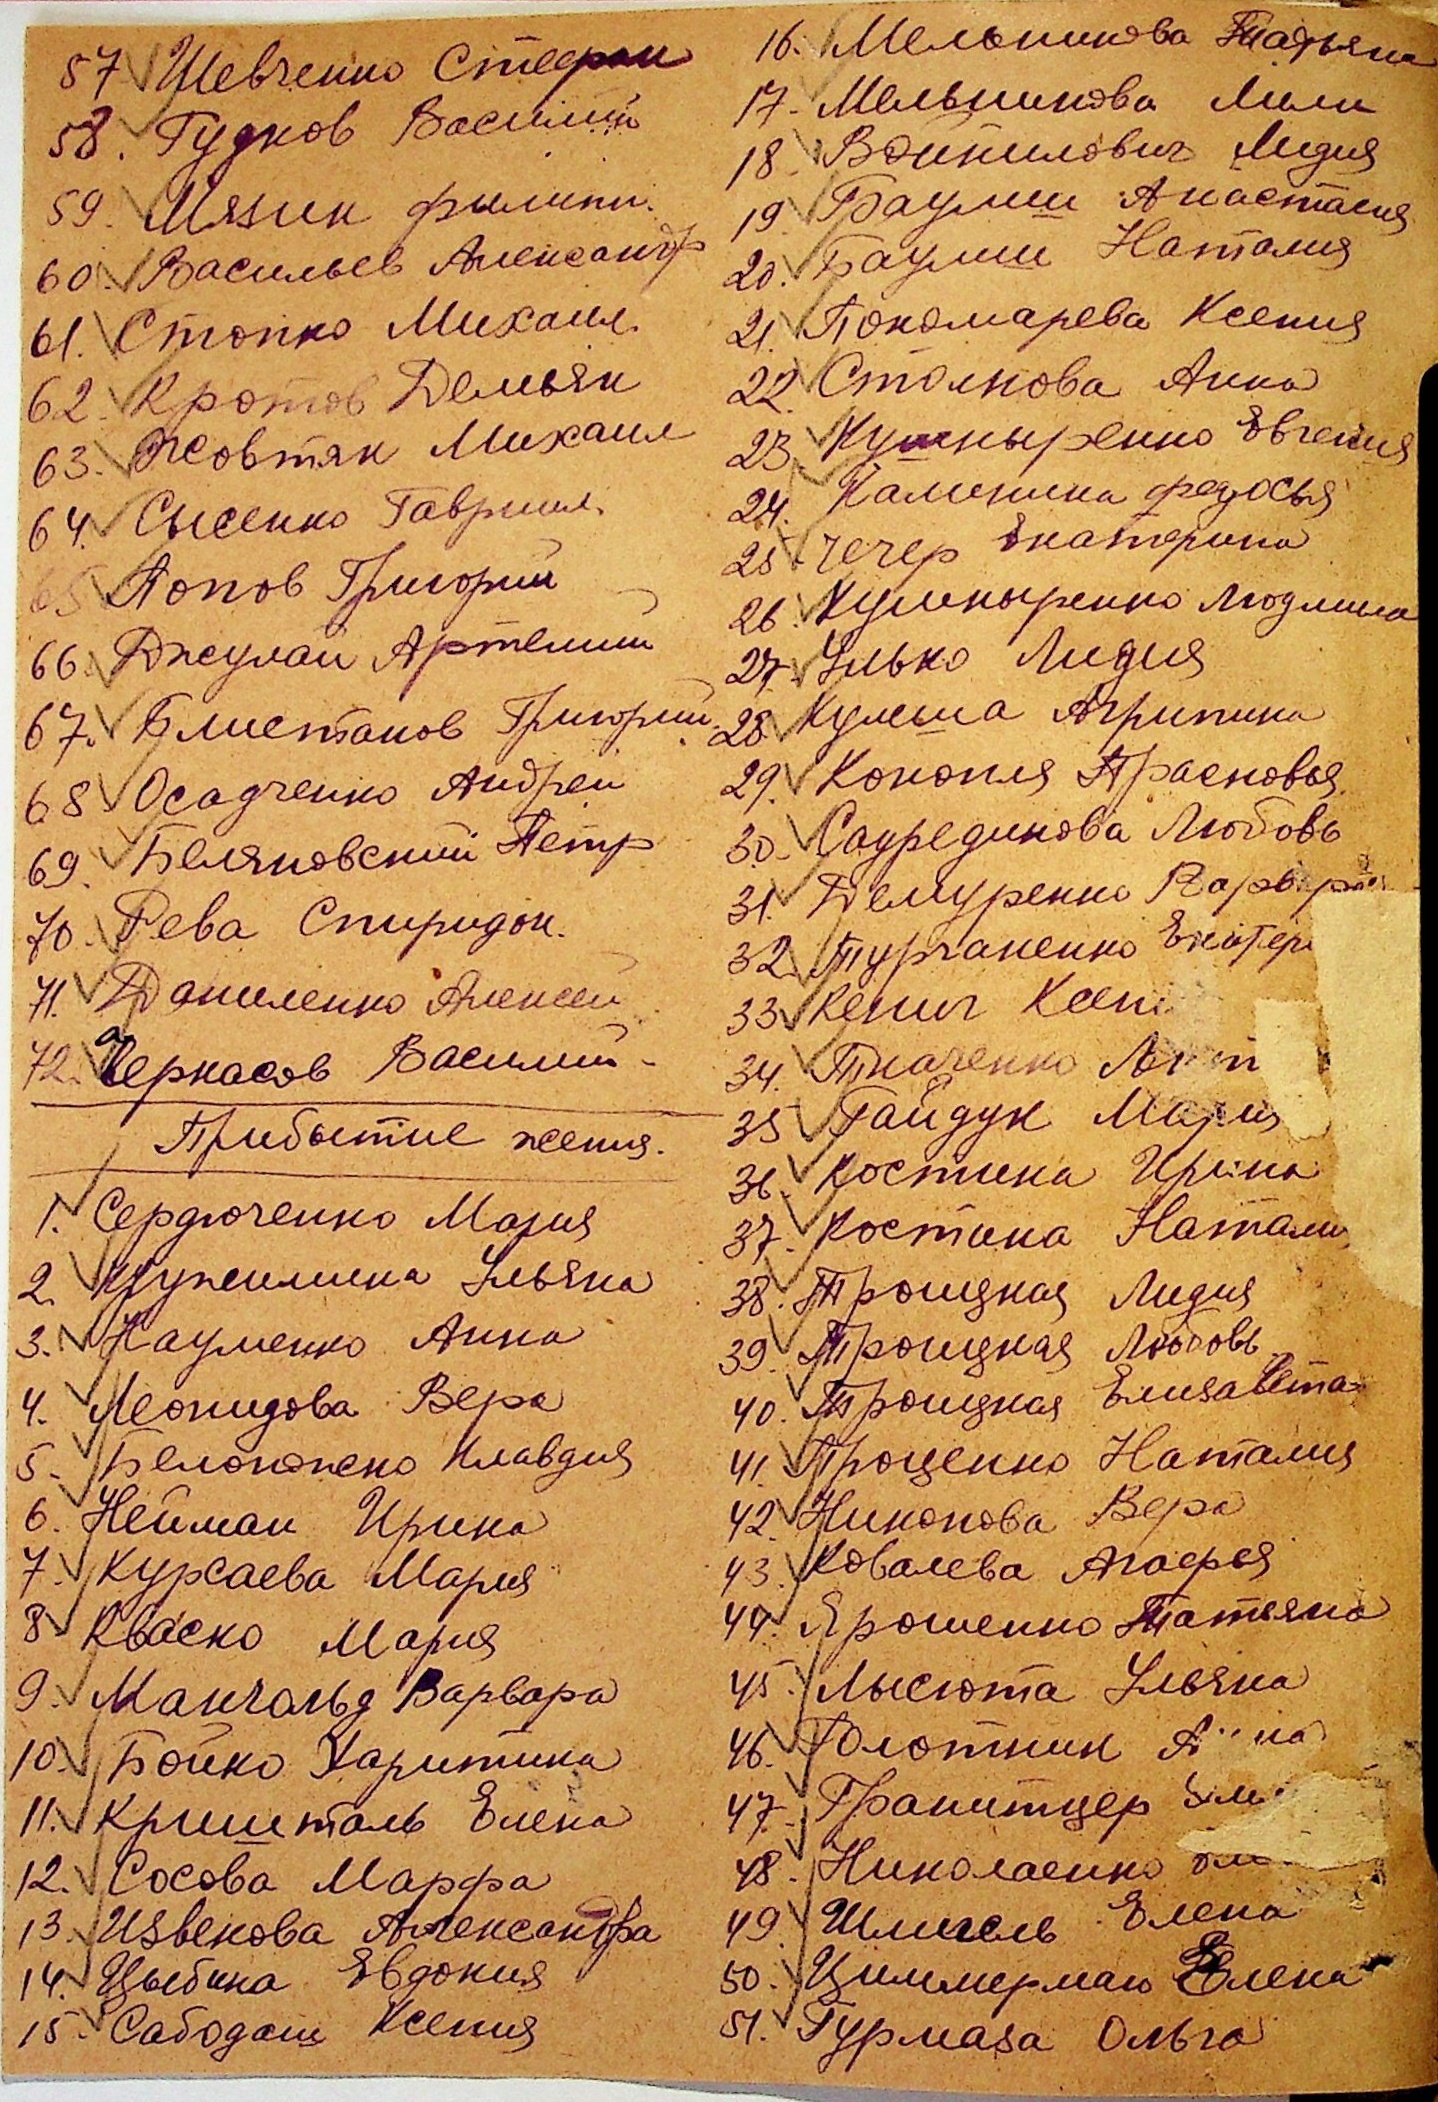 57 Шевченко Стефан
58. Гудков Василий
59. Мязин Филипп.
60. Васильев Александр
61. Стопко Михаил.
62. Кротов Демьян
63. Жовтяк Михаил
64. Сысенко Гавриил.
65 Попов Григорий
66. Джулай Артемий
67. Блистанов Григорий.
68 Осадченко Андрей
69. Беляновский Петр
70. Рева Спиридон.
71. Даниленко Алексей
72. Черкасов Василий
Прибытие жения.
1. Сердюченко Мария
2. Кружилина Ульяна
3. Науменко Анна
4. Леонидова Вера
5. Белоножено Клавдия
6. Нейман Ирина
7. Курсаева Мария
8 Кваско Мария
9. Мангольд Варвара
10. Бойко Харитина
11. Кришталь Елена
12. Сосова Марфа
13. Извекова Александра
14. Цыбина Евдокия
15. Сабодаш Ксения
16. Мельникова Татьяна
17. Мельникова Лили
18. Войтилович Лидия
19 Баулиш Анастасия
20. Баулиш Наталия
21. Пономарева Ксения
22. Столкова Анна
23. Кушныренко Евгения
24. Калинина Федосья
25 Чечер Екатерина
26. Кушныренко Людмила
27. Улько Лидия
28 Кулеша Агрипина
29. Конопля Прасковья
30. Саурединова Любовь
31. Демуренко
32. Турчаненко
33 Кенич
34. Ткаченко
35 Гайдук Мария
36. Костина Ирина
37. Костина Натали
38. Троицкая Лидия
39 Троицкая Любовь
40. Троицкая Елизавета
41. Проценко Наталия
42. Никонова Вера
43 Ковалева Агафья
44 Ярошенко Татьяна
45. Лысюта Ульяна
46. Золотник
47. Гранитцер
48. Николаенко
49. Шлигель Елена
50. Циммерман Елена
51. Гурмаза Ольга